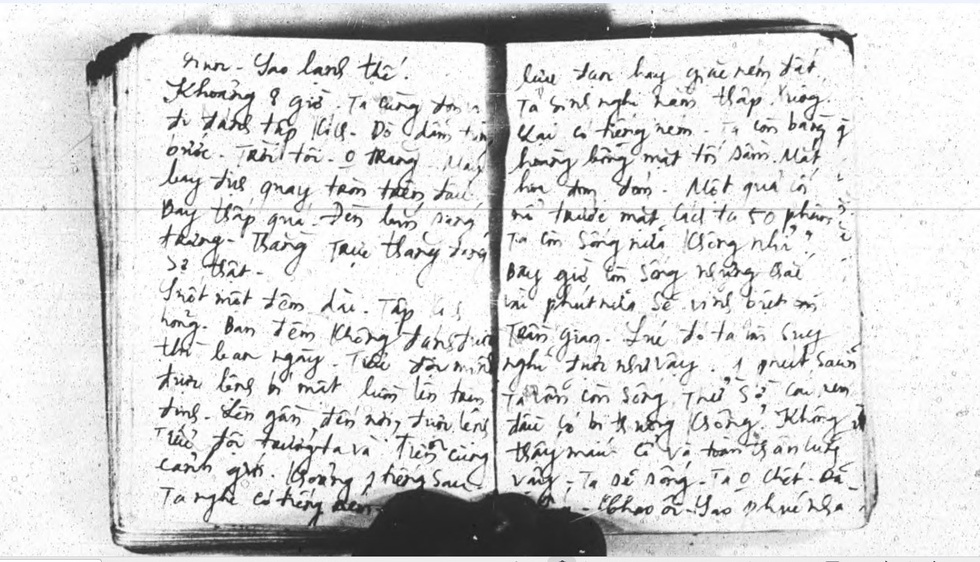 Sao lanh thế.
Khoảng 8 giờ. Ta cùng đơn
đi đánh tập kích. Dò dẫm từng
bước. Trời tối. 0 trăng. Máy
bay cứ quay tròn trên đầu.
Bay thấp quá. Đèn làm sáng
trưng. Thằng trực thăng đáng
sợ thật.
Suốt một đêm dài. Tập kích
hỏng. Ban đêm không đánh được
thì ban ngày. Tiểu đội mình
được lệnh bí mật luồn lên trên
đỉnh. Lên gần đến nơi, được lệnh
Tiểu đội trưởng ta và Tiến cùng
cảnh giới. Khoảng 2 tiếng sau
Ta nghe có tiếng ném
lựu đạn hay giặc ném đất
Ta sinh nghi nằm thấp xuống.
Lại có tiếng ném. Ta còn bàng
hoàng bỗng mặt tối sầm. Mắt
hoa đom đóm. Một quả cối
nổ trước mặt cách ta 50 phân
Ta còn sống nữa không nhỉ?
Bây giờ còn sống nhưng chắc
vài phút nữa sẽ vĩnh biệt
Trần gian. Lúc đó ta còn suy
nghĩ được như vậy. 1 phút sau
ta vẫn còn sống. Thử sờ lên xem
đầu có bị thương không. Không
thấy máu. Cổ và toàn thân cũng
vậy. Ta sẽ sống. Ta 0 chết.
Chao ôi. Sao phút